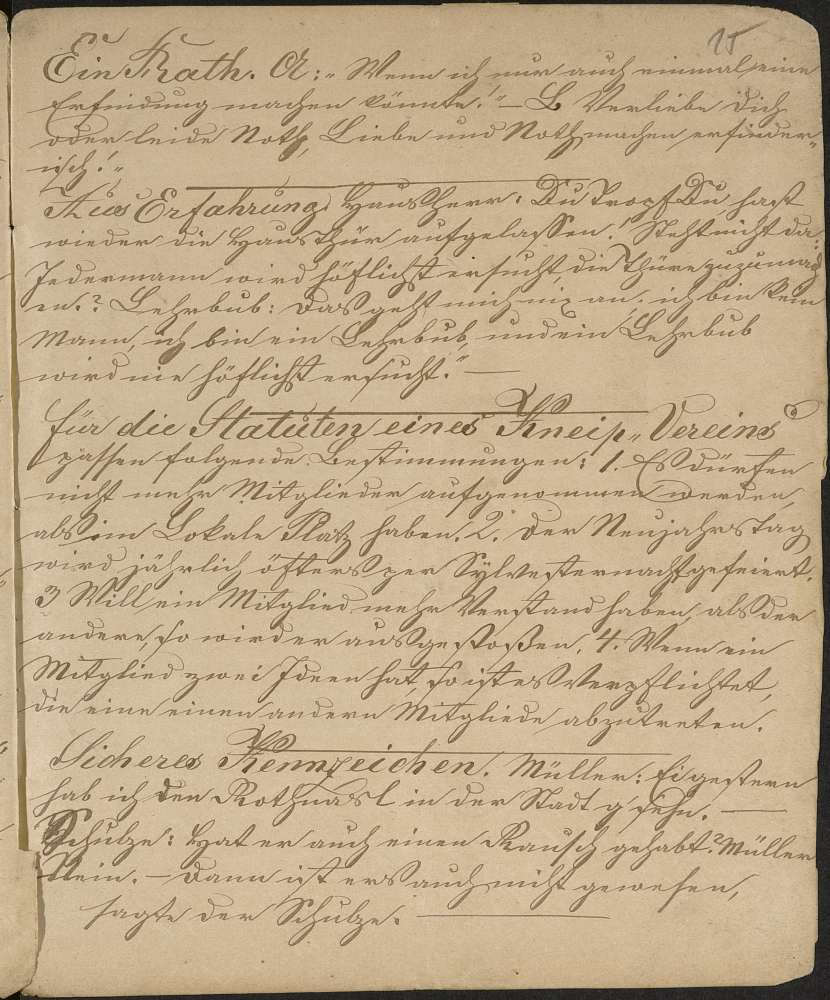 15
Ein Rath. A: „Wenn ich nur auch einmal eine
Erfindung machen könnte!" – B Verliebe Dich
oder leide Noth, Liebe und Noth machen erfinder„
isch!„
Aus Erfahrung. Hausherr: Du Tropf Du hast
wieder die Hausthür aufgelassen! Steht nicht da:
Jedermann wird höflichst ersucht, die Thüre zuzumach
en.? Lehrbub: Das geht mich nix an. ich bin kein
Mann, ich bin ein Lehrbub, und ein Lehrbub
wird nie höflichst ersucht." —
für die Statuten eines Kneip„Vereins
passen folgende Bestimmungen: 1. Es dürfen
nicht mehr Mitglieder aufgenommen werden,
als im Lokale Platz haben. 2. Der Neujahrstag
wird jährlich öfters per Sylvesternacht gefeiert.
3 Will ein Mitglied mehr Verstand haben, als der
andere, so wird er ausgestoßen. 4. Wenn ein
Mitglied zwei Ideen hat, so ist es verpflichtet,
die eine einen andern Mitgliede abzutreten.
Sicheres Kennzeichen. Müller: Ei gestern
hab ich den Rothnasl in der Stadt g'sehn. —
Schulze: Hat er auch einen Rausch gehabt? Müller
Nein. – Dann ist ers auch nicht gewesen,
sagte der Schulze. —